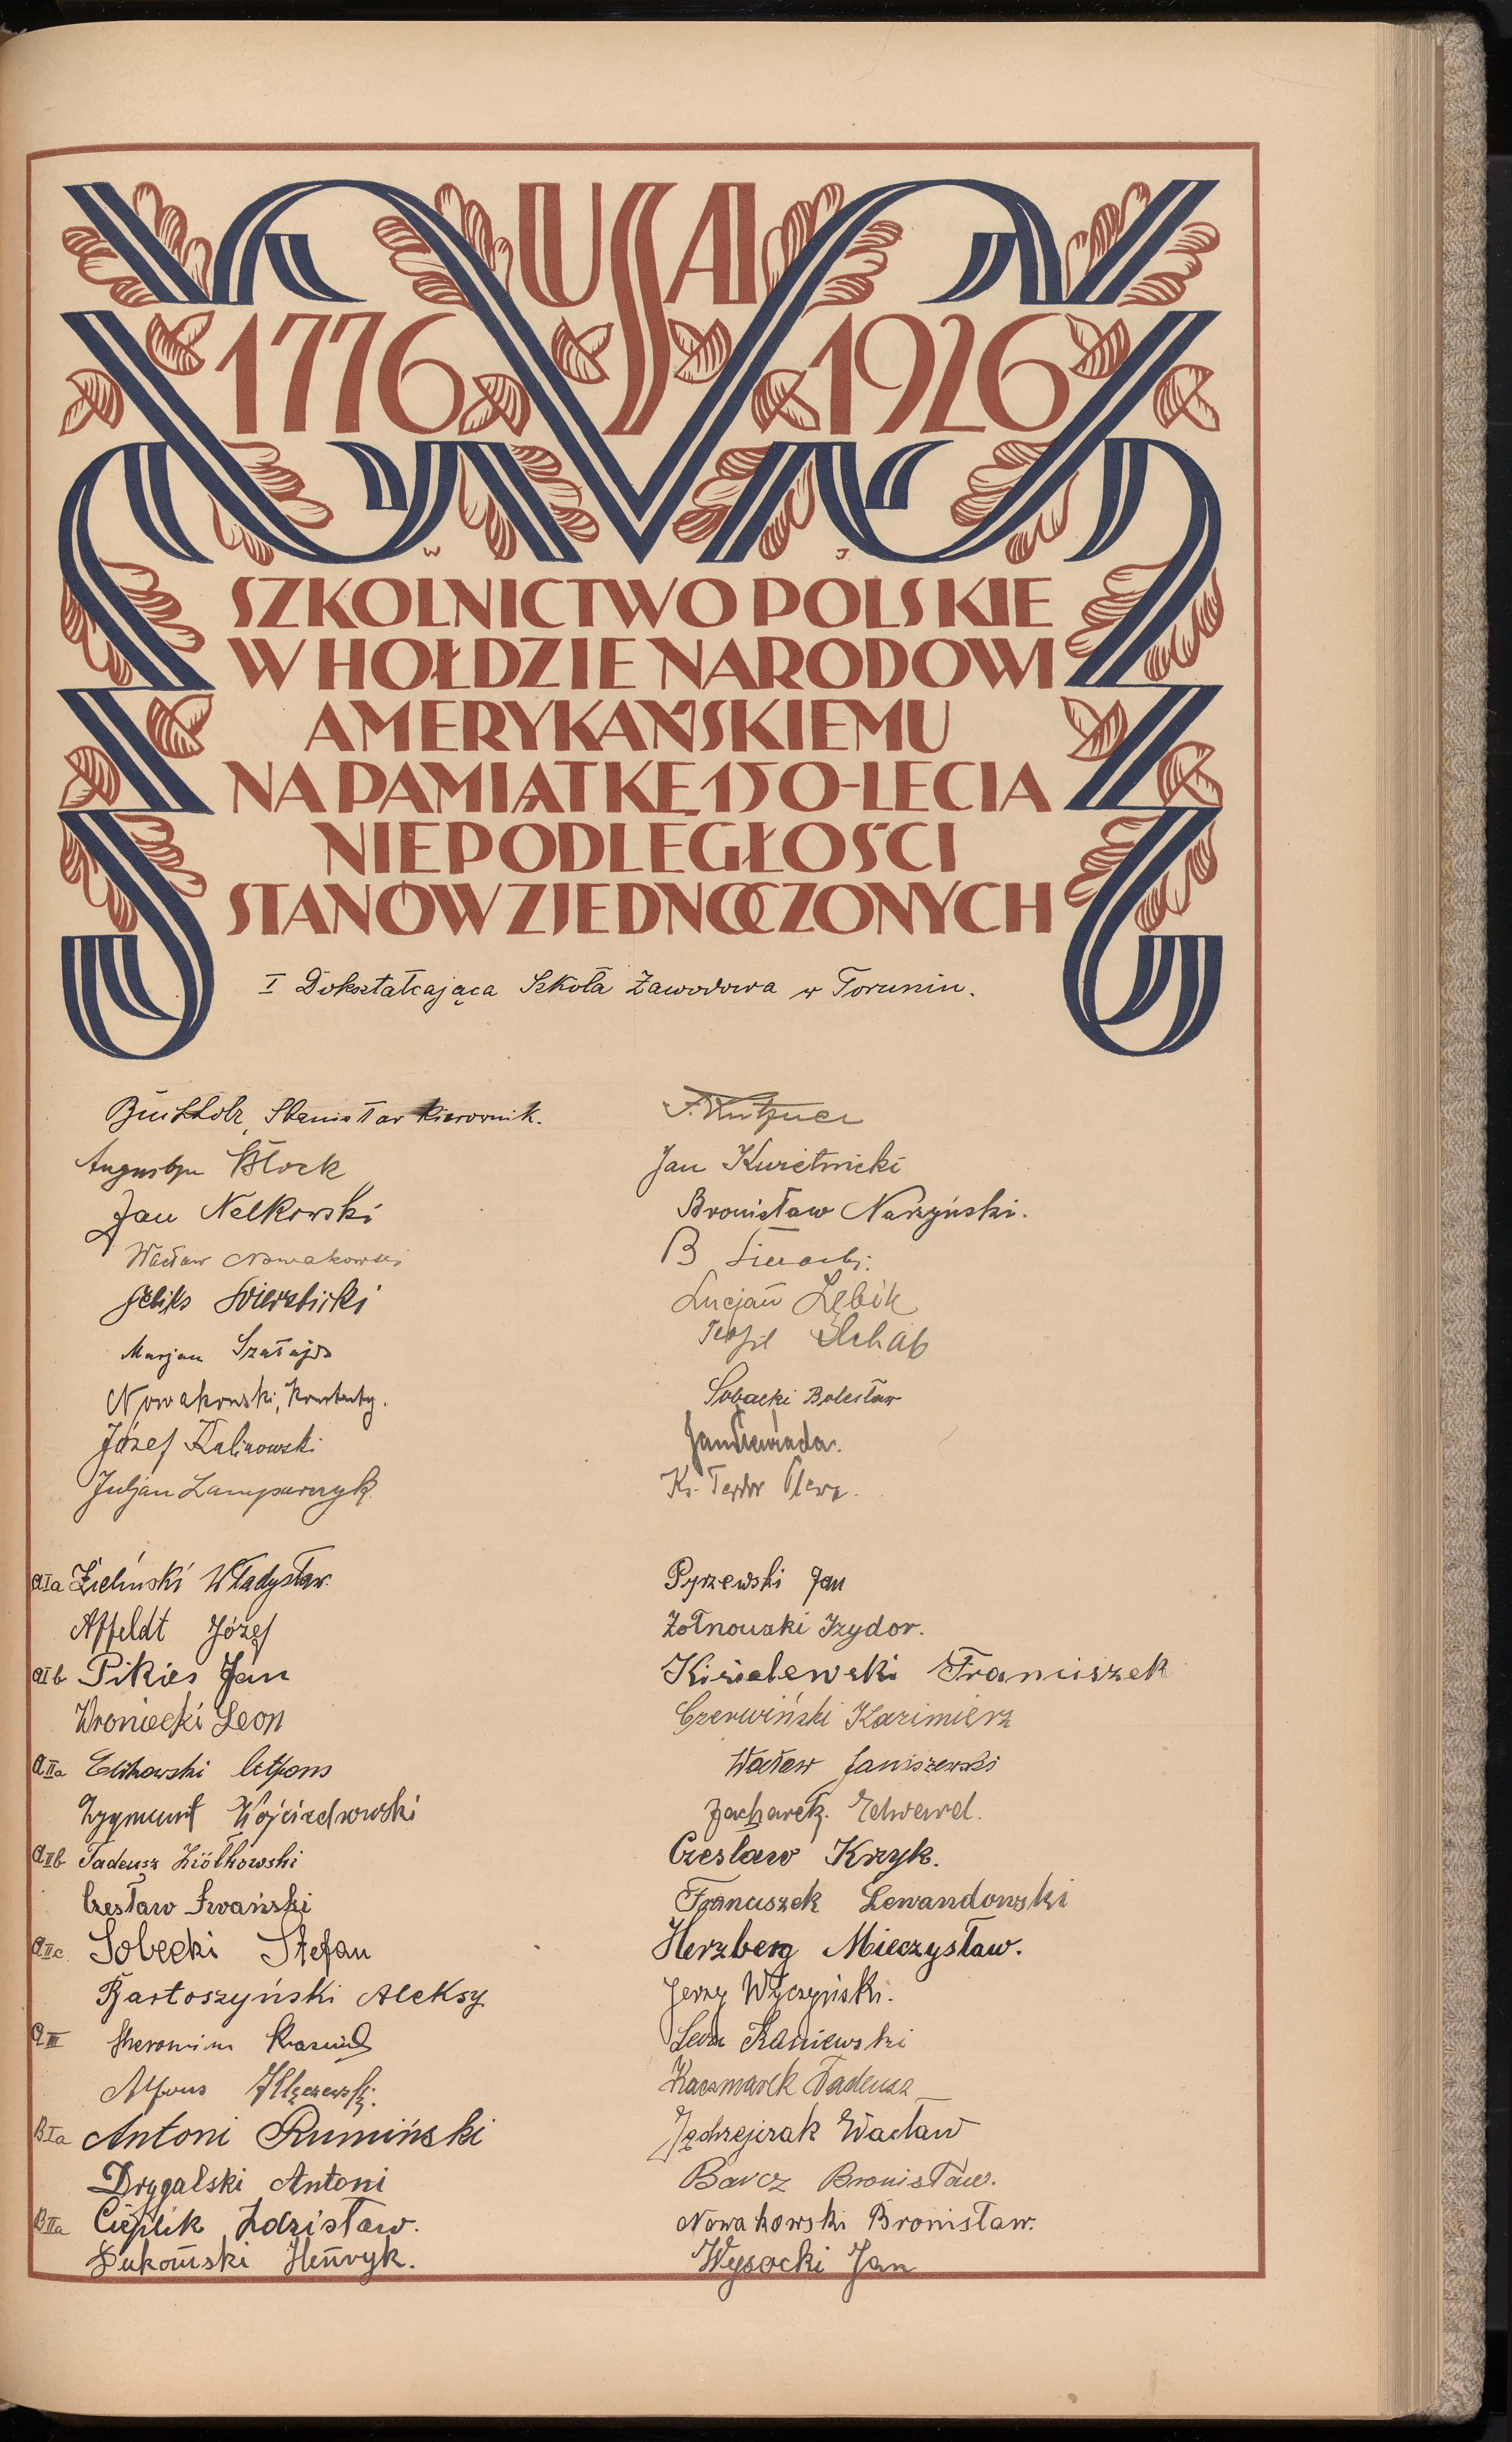 USA
1776 1926
W J.
SZKOLNICTWO POLSKIE
W HOŁDZIE NARODOWI
AMERYKAŃSKIEMU
NA PAMIĄTKĘ 150-LECIA
NIEPODLEGŁOŚCI
STANÓW ZJEDNOCZONYCH
I Dokształcająca Szkoła Zawodowa w Toruniu.
Buchholz, Stanisław kierownik.
Augustyn Block
Jan Nelkowski
Wacław Nowakowski
Feliks Świerzbicki
Marjan Szałajda
Nowakowski, Konstanty.
Józef Kalinowski
Juljan Lamparczyk
F. Kutzner
Jan Kwietnicki
Bronisław Narzyński.
B
Lucjan Lębik
Teofil Schab
Sobacki Bolesław
Jan
Ks.
aIa Zieliński Władysław.
Affeldt Józef
aIb Pikies Jan
Wroniecki Leon
aIIa Elikowski Alfons
Zygmunt Wojciechowski
aIIb Tadeusz Ziółkowski
Czesław Iwański
aIIc Sobecki Stefan
Bartoszyński Aleksy
aIII Hieronim
Alfons Kłączewski.
BIa Antoni Rumiński
Drygalski Antoni
BIIa Cieplik Zdzisław.
Henryk.
Pyrzewski Jan
Żołnowski Izydor.
Kisielewski Franciszek
Czerwiński Kazimierz
Wacław Janiszewski
Zacharek. Edward.
Czesław Krzyk.
Franciszek Lewandowski
Herzberg Mieczysław.
Jerzy Wyczyński.
Leon Kaniewski
Kaczmarek Tadeusz
Jędrzejczak Wacław
Barcz Bronisław.
Nowakowski Bronisław.
Wysocki Jan